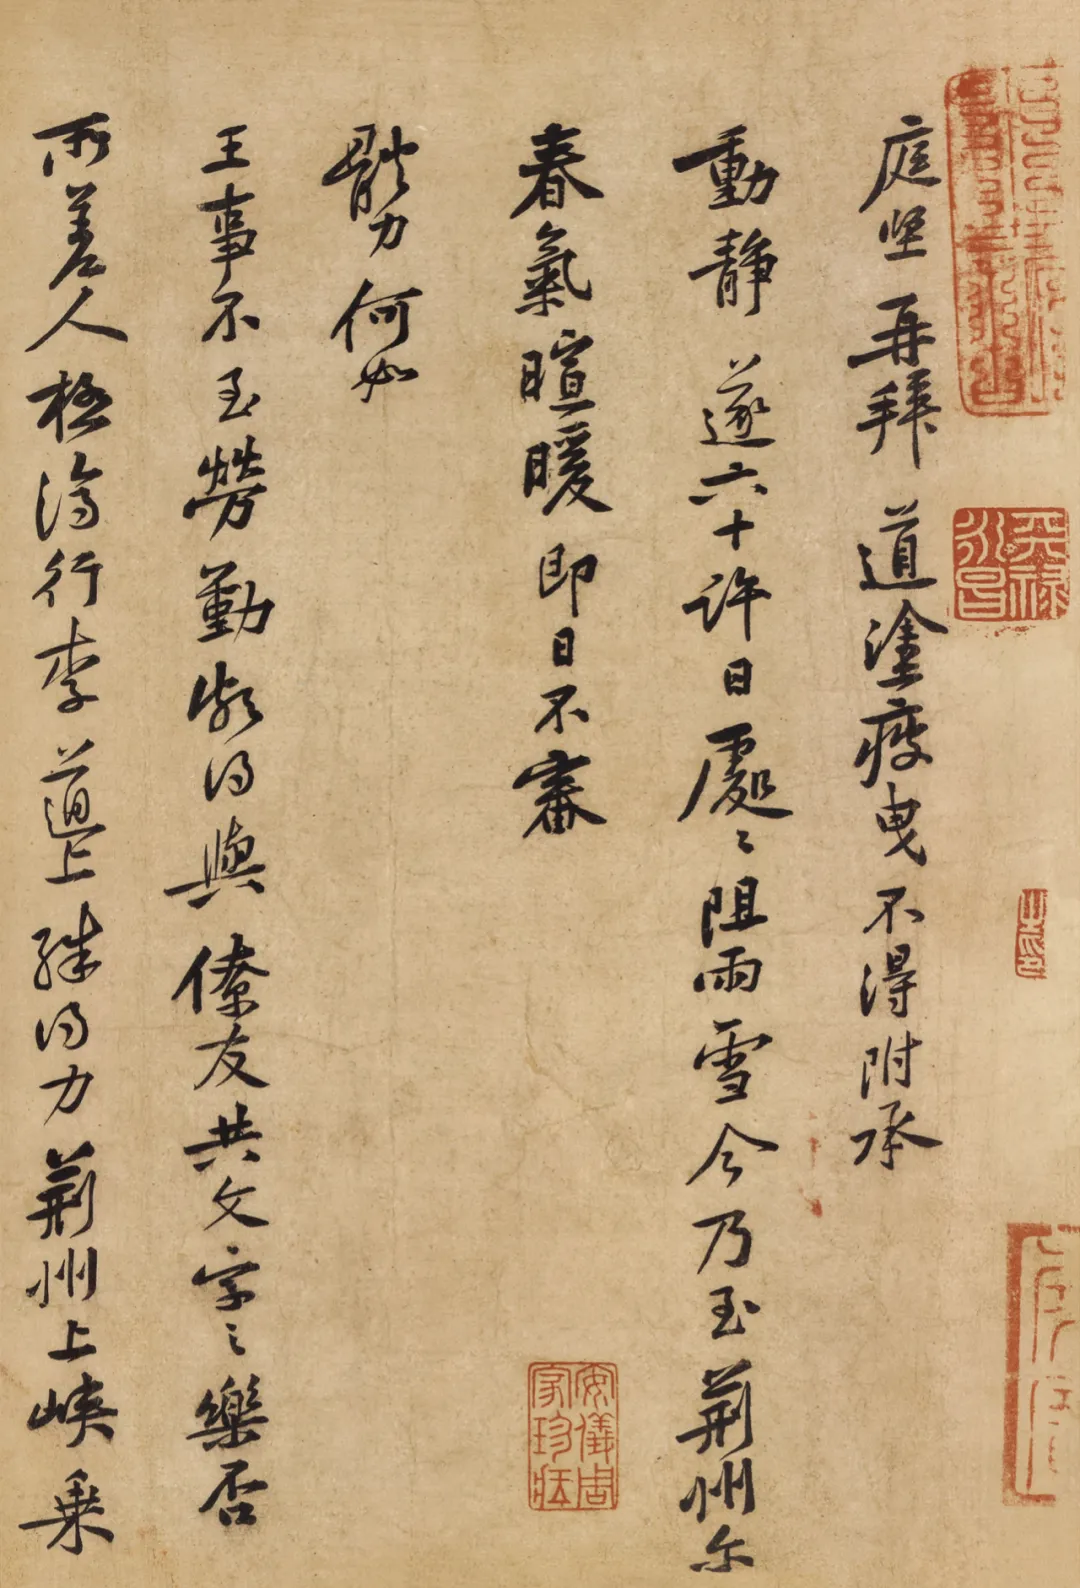 庭堅再拜道塗疲曳不得附承
動靜遂六十許日處〻阻雨雪今乃至荊州尔
春氣暄暖即日不審
體力何如
王事不至勞勤頗得與僚友共文字之樂否
所差人極濟行李上下殊得力荊州上峽乗
天祿
永昌
安儀周
家珍藏